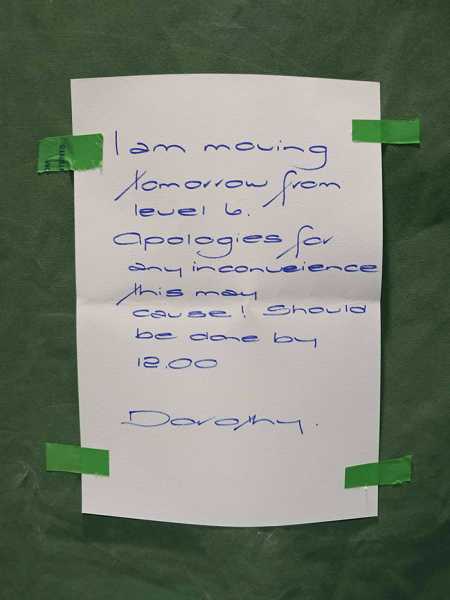 I am moving
tomorrow from
level 6.
Apologies for
any inconveience
this may
cause! Should
be done by
12.00
Dorothy.